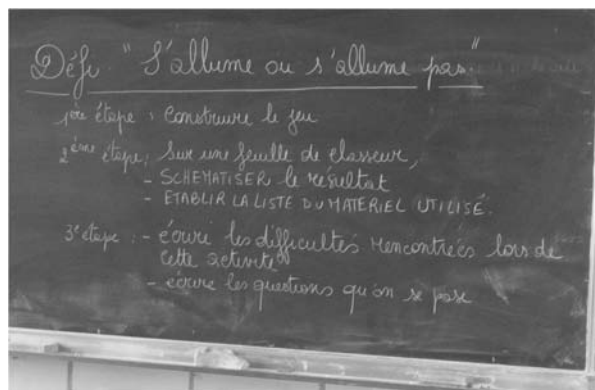 Défi "S'allume ou s'allume pas"
1ère étape : Construire le jeu
2ème étape : Sur une feuille de classeur,
- SCHEMATISER le résultat
- ETABLIR LA LISTE DU MATERIEL UTILISÉ.
3e étape : - écrire les difficultés rencontrées lors de
cette activité
- écrire les questions qu'on se pose